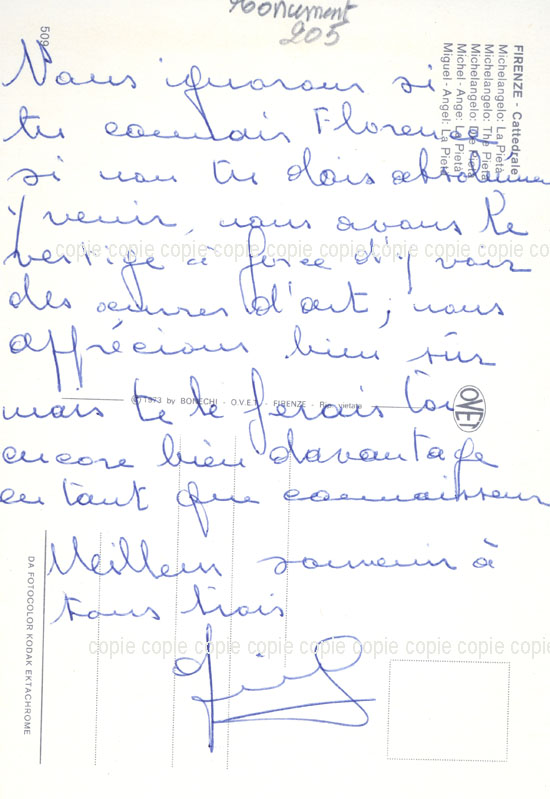 Monument
205
509
FIRENZE - Cattedrale
Michelangelo: La Pietà
Michelangelo: The Pietà
Michelangelo: Die Pietà
Michel-Ange: La Pietà
Miguel-Angel: La Pietà
Nous ignorons si
tu connais Florence
si non tu dois absolument
y venir, nous avons le
vertige à force d'y voir
des oeuvres d'art; nous
apprécions bien sûr
mais te le ferais toi
encore bien davantage
en tant que connaisseur
Meilleur souvenir à
tous trois
copie copie copie copie copie copie copie copie copie copie
© 1973 by BONECHI - O.V.E.T. - FIRENZE - Rip. vietata
OVET
DA FOTOCOLOR KODAK EKTACHROME
copie copie copie copie copie copie copie copie copie copie